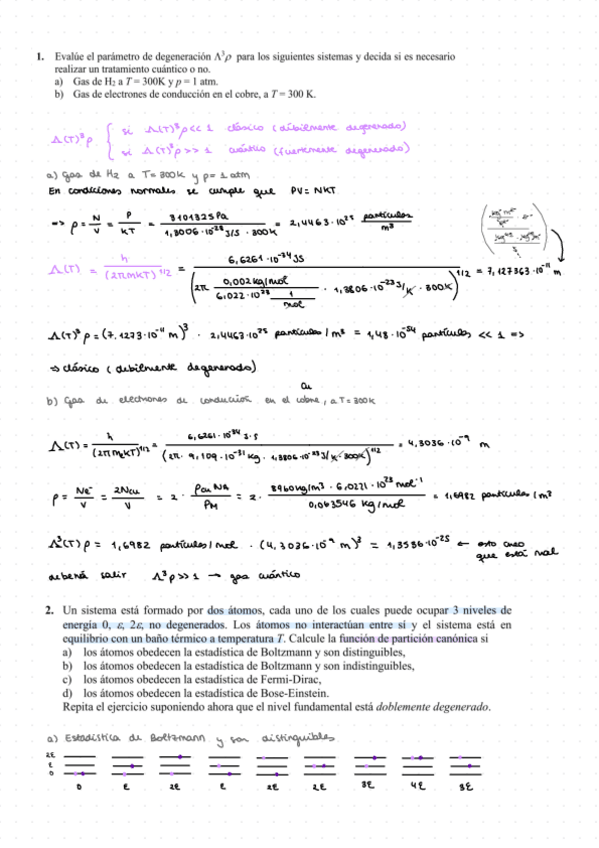 1. Evalúe el parámetro de degeneración Λ³ρ para los siguientes sistemas y decida si es necesario
realizar un tratamiento cuántico o no.
a) Gas de H₂ a T = 300K y p = 1 atm.
b) Gas de electrones de conducción en el cobre, a T = 300 K.
Λ(T)³ρ { si Λ(T)³ρ << 1 clásico (débilmente degenerado)
si Λ(T)³ρ >> 1 cuántico (fuertemente degenerado)
a) Gas de H₂ a T = 300K y p = 1 atm
En condiciones normales se cumple que PV = NKT
=> ρ = N/V = P/KT = 101325 Pa / 1,3806·10⁻²³ J/S · 300K = 2,4463·10²⁵ partículas/m³
Λ(T) = h/(2πmKT)^1/2 = 6,6261·10⁻³⁴ JS / (2π · 0,002 kg/mol / 6,022·10²³ 1/mol · 1,3806·10⁻²³ J/K · 300K)^1/2 = 7,127363·10⁻¹¹ m
Λ(T)³ρ = (7,1273·10⁻¹¹ m)³ · 2,4463·10²⁵ partículas/m³ = 1,48·10⁻⁵⁴ partículas << 1 =>
=> clásico (débilmente degenerado)
Cu
b) Gas de electrones de conducción en el cobre, a T = 300K
Λ(T) = h/(2πmₑKT)^1/2 = 6,6261·10⁻³⁴ J·S / (2π · 9,109·10⁻³¹ kg · 1,3806·10⁻²³ J/K · 300K)^1/2 = 4,3036·10⁻⁹ m
ρ = Ne⁻/V = 2Ncu/V = 2 · ρcu NA/PM = 2 · 8960 kg/m³ · 6,0221·10²³ mol⁻¹ / 0,063546 kg/mol = 1,6982 partículas/m³
Λ³(T)ρ = 1,6982 partículas/mol · (4,3036·10⁻⁹ m)³ = 1,3536·10⁻²⁵ ← esto creo
que está mal
deberá salir Λ³ρ >> 1 → gas cuántico
2. Un sistema está formado por dos átomos, cada uno de los cuales puede ocupar 3 niveles de
energía 0, ε, 2ε, no degenerados. Los átomos no interactúan entre si y el sistema está en
equilibrio con un baño térmico a temperatura T. Calcule la función de partición canónica si
a) los átomos obedecen la estadística de Boltzmann y son distinguibles,
b) los átomos obedecen la estadística de Boltzmann y son indistinguibles,
c) los átomos obedecen la estadística de Fermi-Dirac,
d) los átomos obedecen la estadística de Bose-Einstein.
Repita el ejercicio suponiendo ahora que el nivel fundamental está doblemente degenerado.
a) Estadística de Boltzmann y son distinguibles
2ε
ε
0
0 ε 2ε ε 2ε 2ε 3ε 4ε 3ε